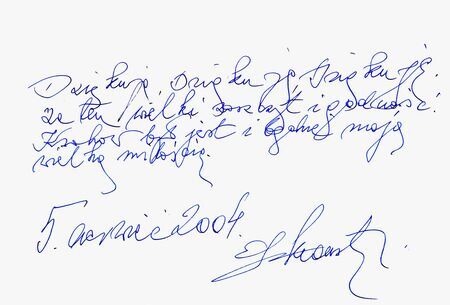 Dziękuję Dziękuję Dziękuję.
za ten wielki zaszczyt i godność.
Kraków był jest i będzie moją
wielką miłością.
5. 2004.